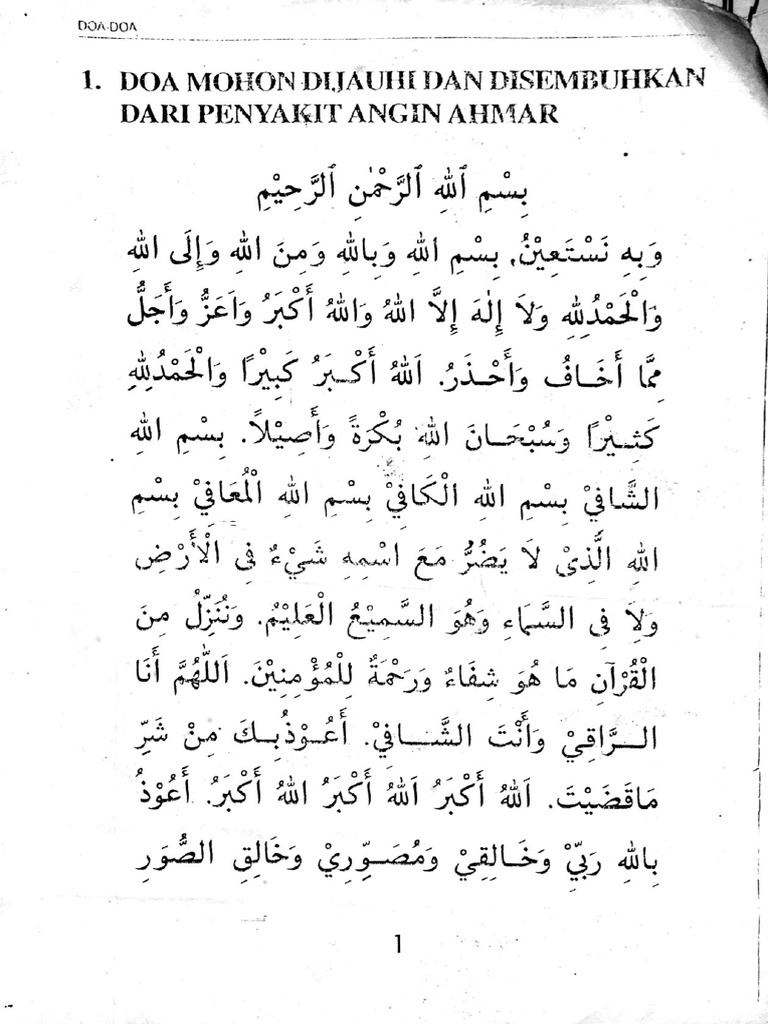 DOA-DOA
1. DOA MOHON DIJAUHI DAN DISEMBUHKAN
DARI PENYAKIT ANGIN AHMAR
بِسْمِ ٱللهِ ٱلرَّحْمٰنِ ٱلرَّحِيْمِ
وَبِهِ نَسْتَعِيْنُ, بِسْمِ اللهِ وَبِاللهِ وَمِنَ اللهِ وَإِلَى اللهِ
وَالْحَمْدُلِلهِ وَلاَ إِلٰهَ إِلاَّ اللهُ وَاللهُ أَكْبَرُ وَاَعَزُّ وَأَجَلُّ
مِمَّا أَخَافُ وَأَحْذَرُ. اَللهُ أَكْبَرُ كَبِيْرًا وَالْحَمْدُلِلهِ
كَثِيْرًا وَسُبْحَانَ اللهِ بُكْرَةً وَأَصِيْلاً. بِسْمِ اللهِ
الشَّافِيْ بِسْمِ اللهِ الْكَافِيْ بِسْمِ اللهِ الْمُعَافِيْ بِسْمِ
اللهِ الَّذِيْ لاَ يَضُرُّ مَعَ اسْمِهِ شَيْءٌ فِى الْأَرْضِ
وَلاَ فِى السَّمَاءِ وَهُوَ السَّمِيْعُ الْعَلِيْمُ. وَنُنَزِّلُ مِنَ
الْقُرْآنِ مَا هُوَ شِفَاءٌ وَرَحْمَةٌ لِلْمُؤْمِنِيْنَ. اَللّٰهُمَّ أَنَا
الرَّاقِيْ وَأَنْتَ الشَّافِيْ. أَعُوْذُبِكَ مِنْ شَرِّ
مَاقَضَيْتَ. اَللهُ أَكْبَرُ اَللهُ أَكْبَرُ اللهُ أَكْبَرُ. أَعُوْذُ
بِاللهِ رَبِّيْ وَخَالِقِيْ وَمُصَوِّرِيْ وَخَالِقِ الصُّوَرِ
1